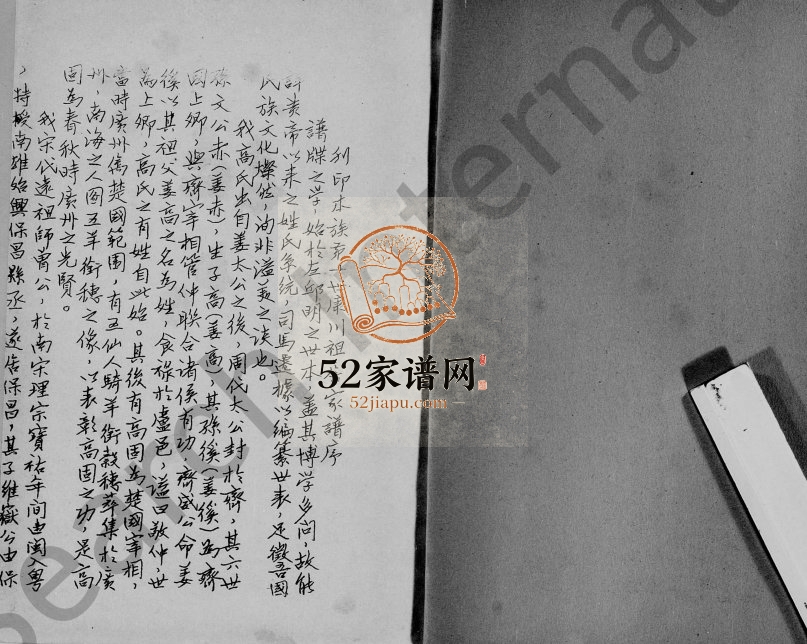 刋印本族肇川祖家譜序
譜牒之學，始於左邱明之世本，蓋其博學多聞，故能
詳黃帝以來之姓氏系統，司馬遷據以編纂世表，足徵吾國
民族文化燦然，洵非溢美之談也。
我高氏出自姜太公之後，周代太公封於齊，其六世
孫文公赤(姜赤)，生子高(姜高)其孫傒(姜傒)為齊
國上卿，與齊宰相管仲聯合諸侯有功，齊威公命姜
傒以其祖父姜高之名為姓，食祿於盧邑，謚曰敬仲，世
為上卿，高氏之有姓自此始。其後有高固為楚國宰相，
當時廣州屬楚國範圍，有五仙人騎羊銜穀穗萃集於廣
州，南海之人圖五羊銜穗之像，以表彰高固之功，是高
固為春秋時廣州之先賢。
我宋代遠祖師胄公，於南宋理宗寶祐年間由閩入粵
，特授南雄始興保昌縣丞，遂居保昌，其子維嶽公由保
52家谱网
52jiapu.com
Search Internat